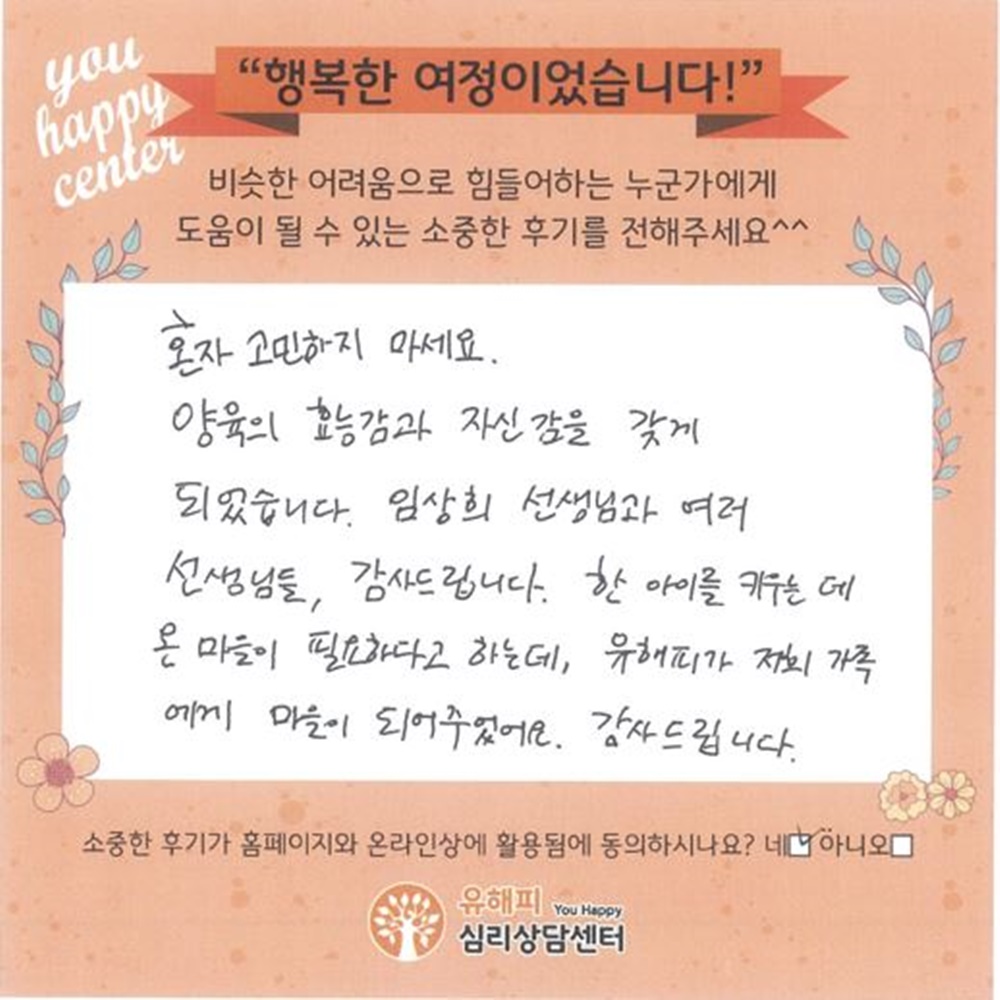 you
happy
center
“행복한 여정이었습니다!”
비슷한 어려움으로 힘들어하는 누군가에게
도움이 될 수 있는 소중한 후기를 전해주세요^^
혼자 고민하지 마세요.
양육의 효능감과 자신감을 갖게
되었습니다. 임상희 선생님과 여러
선생님들, 감사드립니다. 한 아이를 키우는 데
온 마을이 필요하다고 하는데, 유해피가 저희 가족
에게 마을이 되어주었어요. 감사드립니다.
소중한 후기가 홈페이지와 온라인상에 활용됨에 동의하시나요? 네☑ 아니오☐
유해피 You Happy
심리상담센터